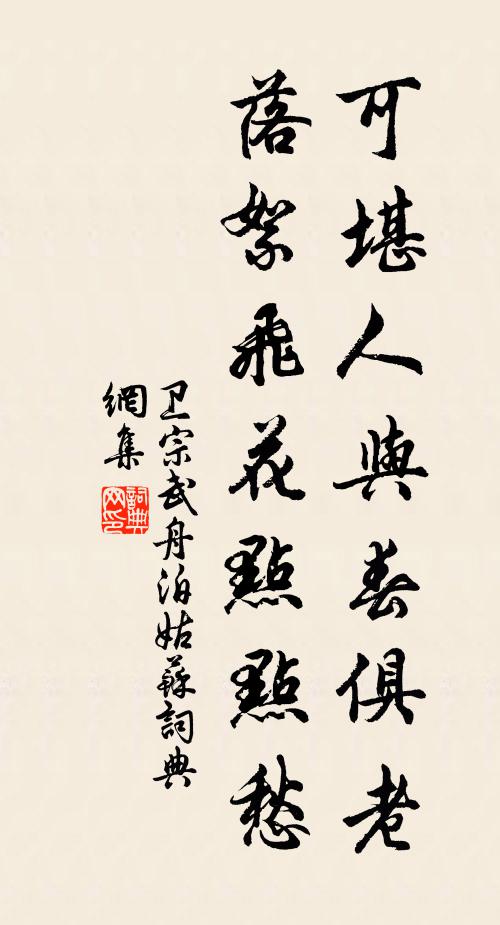 可堪人與春俱老
落絮飛花點點愁
卫宗武舟泊姑蘇詞典
網集
詞典
网印